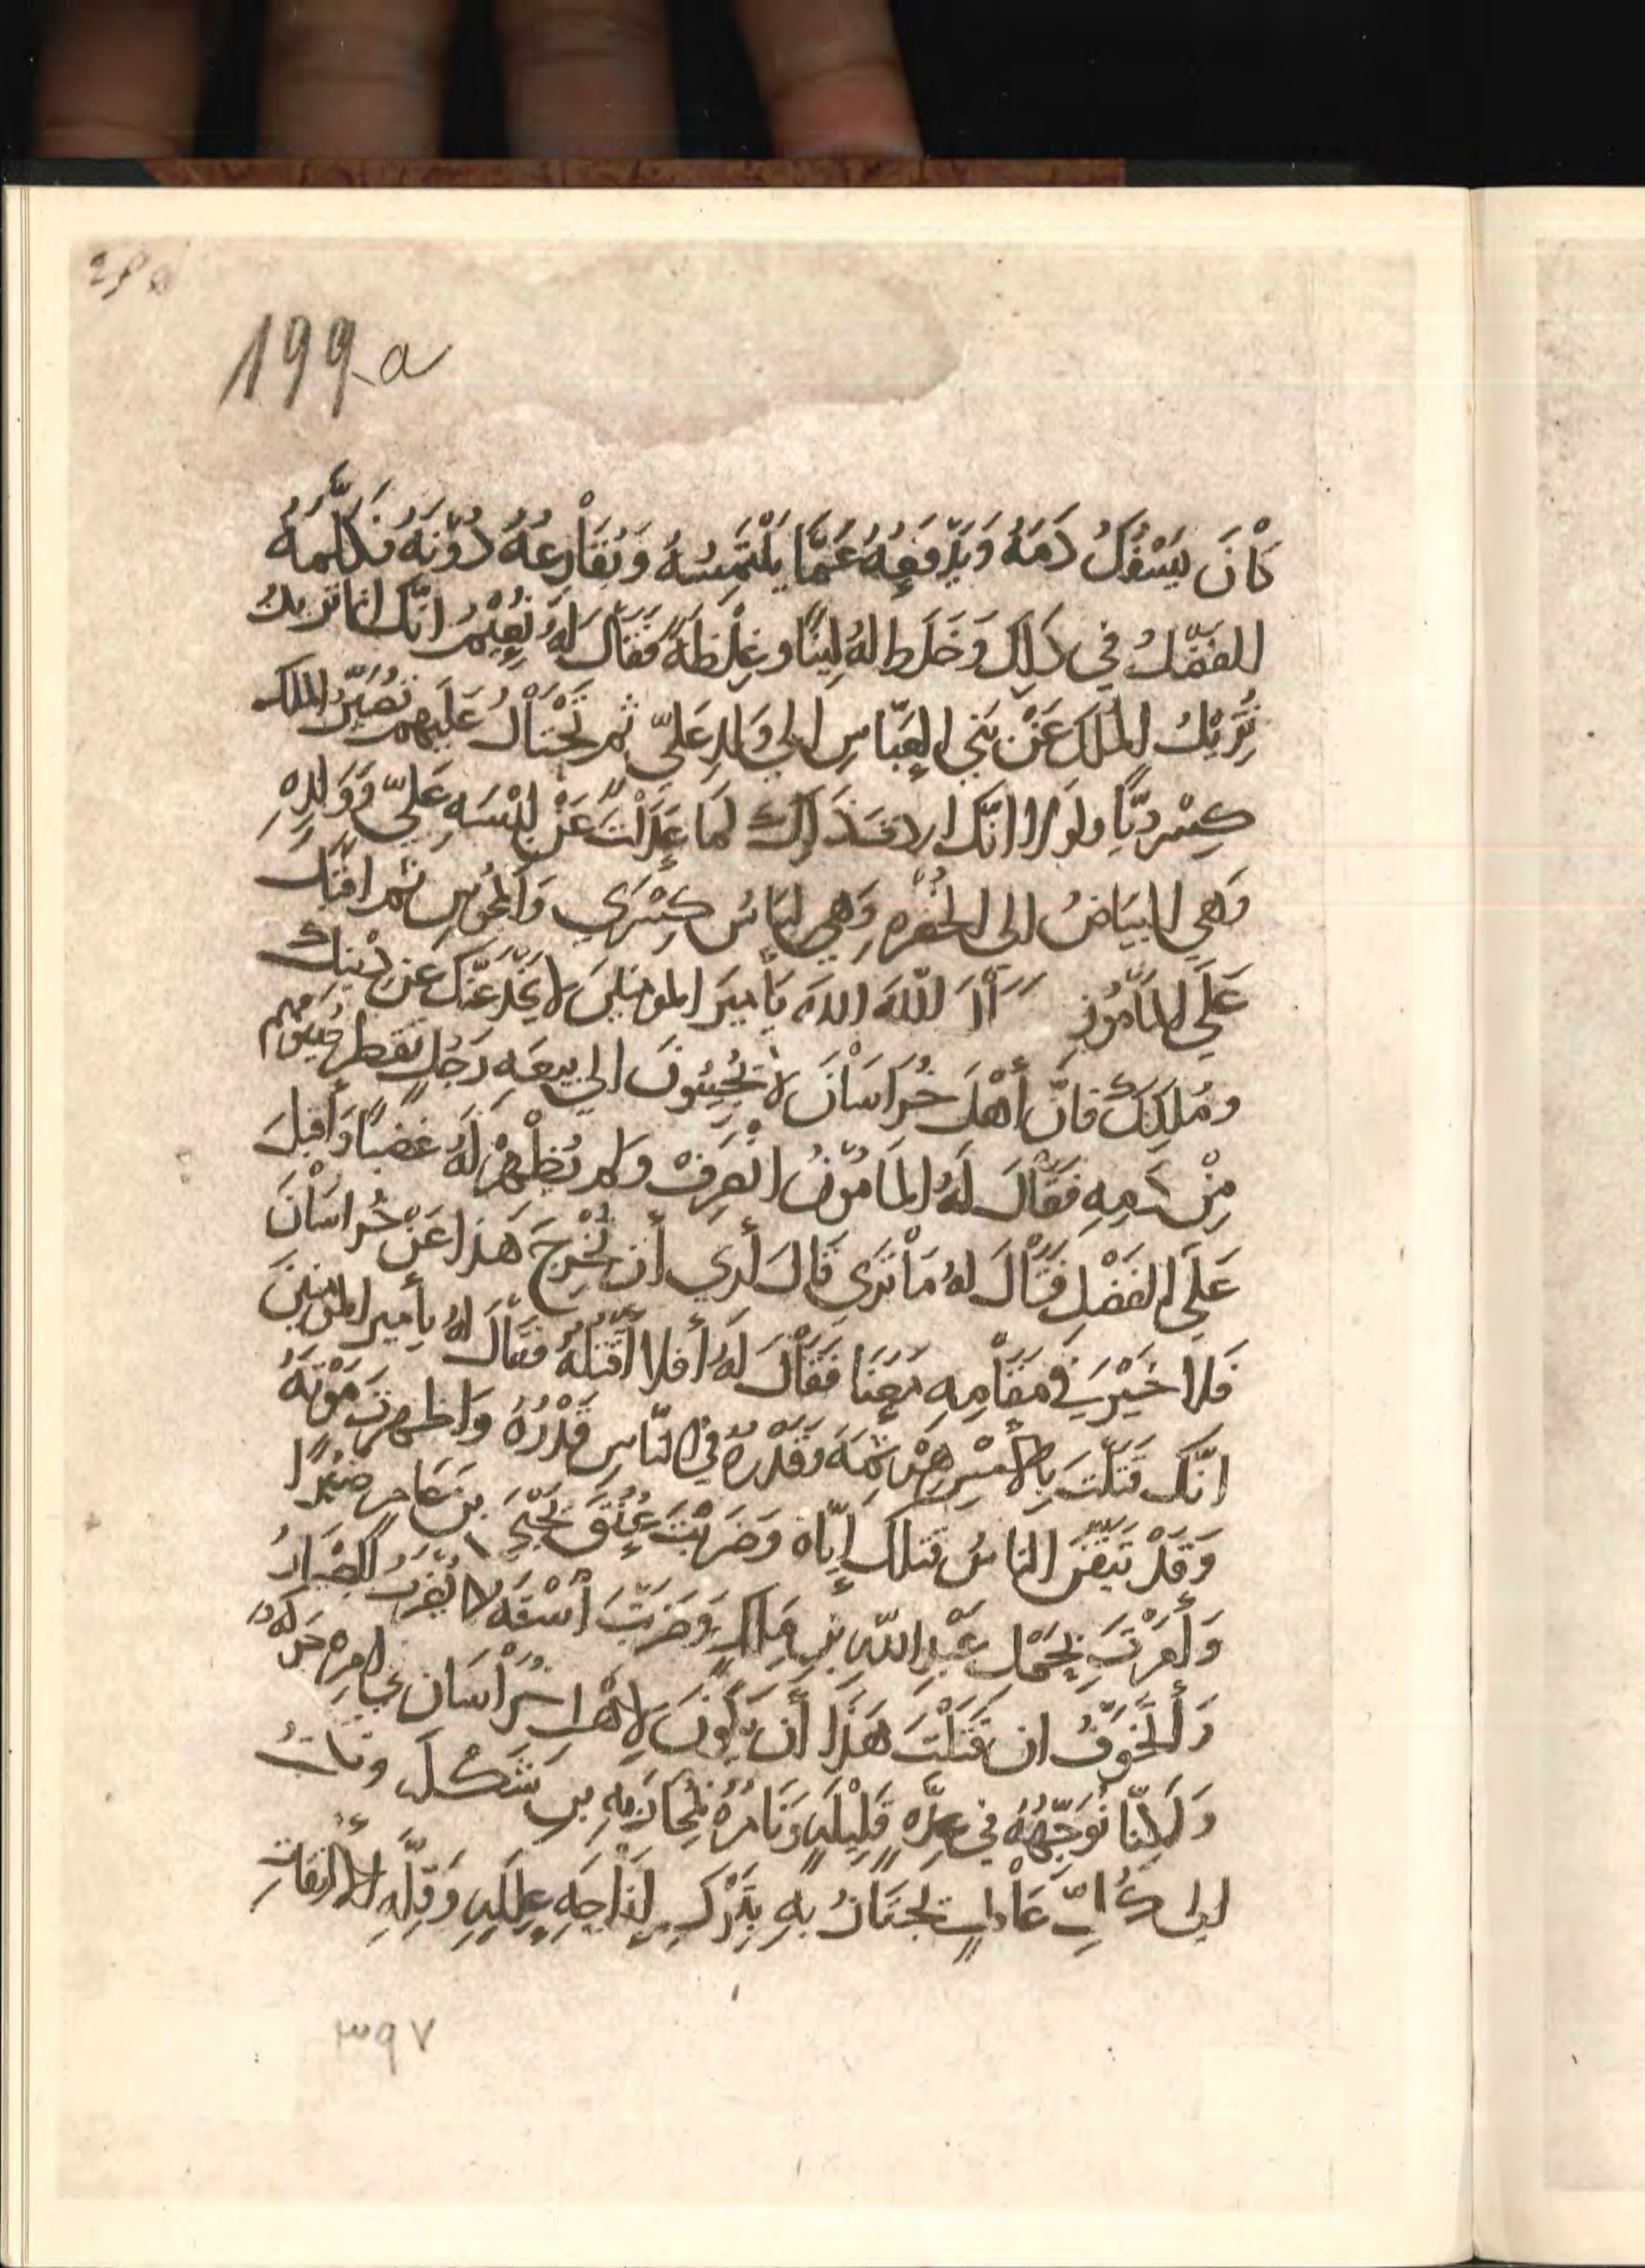 199a
كَانَ يَسْفُكُ دَمَهُ وَيَدْفَعُهُ عَمَّا يَلْتَمِسُهُ وَيُقَارِعُهُ دُونَهُ فَكَلَّمَهُ
الفضل في ذلك وَخَلَط لهُ لِينًا وغِلْظَةً فَقَالَ لَهُ نُعَيْم انّك انما تريد
تُزِيلُ المُلكَ عَنْ بَنِي العَبّاسِ الي وَلدِ عَليّ ثم تَحْتَالُ عَلَيهم تصَيّر الملك
كِسْرويًّا ولولا انّك اردت ذلك لما عَدَلْتَ عَنْ لِبْسَةِ عَلِيّ وَوَلدِهِ
وَهي البيَاضُ الي الخُضره وَهي لبَاسُ كِسْرَي وَالمجُوس ثم اقبَل
عَلَي المَأمُونِ اللهَ اللهَ يَأميرَ المومنينَ لا يَخْدعَنَّكَ عن دينك
ومُلكِكَ فانّ أهْلَ خُرَاسَانَ لا يُجِيبُونَ الي بيعَهِ رَجُلٍ تقطر سيُوفهم
مِنْ دَمِهِ فَقَالَ لَهُ المَامُونُ انْصَرِفْ ولم يُظْهِرْ لَهُ غضبًا وَأقبلَ
عَلَي الفَضْلِ فَقَالَ لهُ مَا تَرَي قَالَ أرَي أن تُخْرِجَ هَذا عَنْ خُراسَانَ
فَلا خَيْرَ في مَقَامِهِ مَعَنَا فَقَالَ لَهُ أفلا أقتلهُ فقَالَ لهُ يأمير المومنينَ
انّك قَتَلْتَ بِالأمْسِ هَرْثمَهَ وَقَدْرهُ في النّاسِ قَدْرُهُ وَاظهرتَ مَوْتَهُ
وَقَدْ تيَقّنَ الناسُ قتلك إيّاه وَضَرَبْتَ عُنُقَ يَحْيَي بن عَامر صَبْرًا
وَأمَرْتَ بِحَمْلِ عَبْدِ اللّه بنِ مَالك وَضَرَبْتَ اسْتَهُ كما يُضْرَبُ الصّبيَانُ
وَأتَخَوّفُ ان قَتَلْتَ هَذَا أن يَكُونَ لأهْلِ خُرَاسَان بهَا حَرَكه
وَلَكِنّا نُوَجّهُهُ في عِدّهٍ قَلِيْلَهٍ وَنَامُرُهُ بمُحَارَبهِ بن شَكلَ ونكتبُ
الي بهِ وَقلَّهِ النفقاتِ
٣٩٧